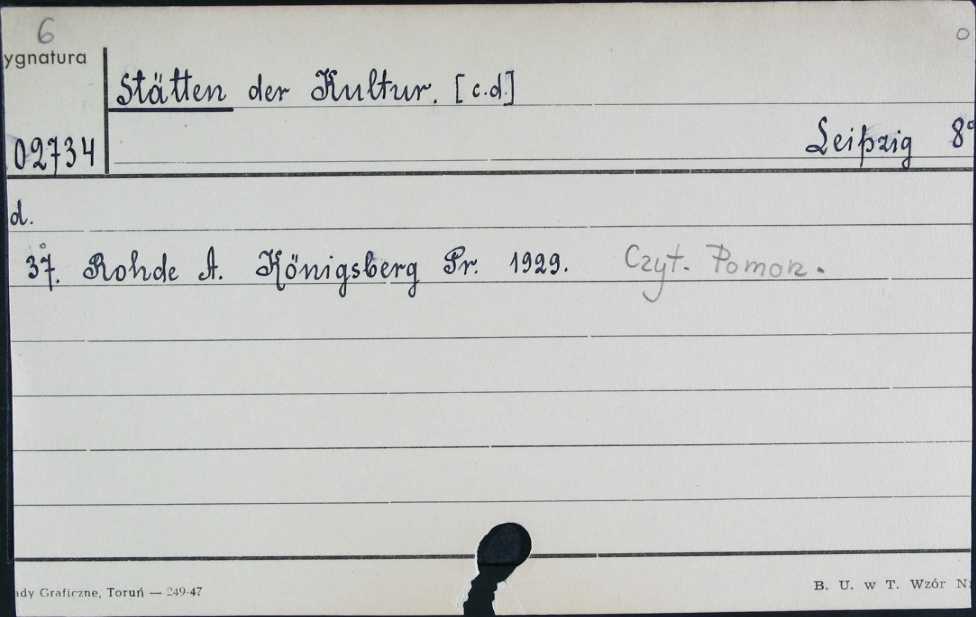 6
ygnatura
Stätten der Kultur. [c.d.]
02734
Leipzig 8°
d.
37. Rohde A. Königsberg Pr. 1929. Czyt. Pomorz.
ady Graficzne, Toruń — 249-47
B. U. w T. Wzór N